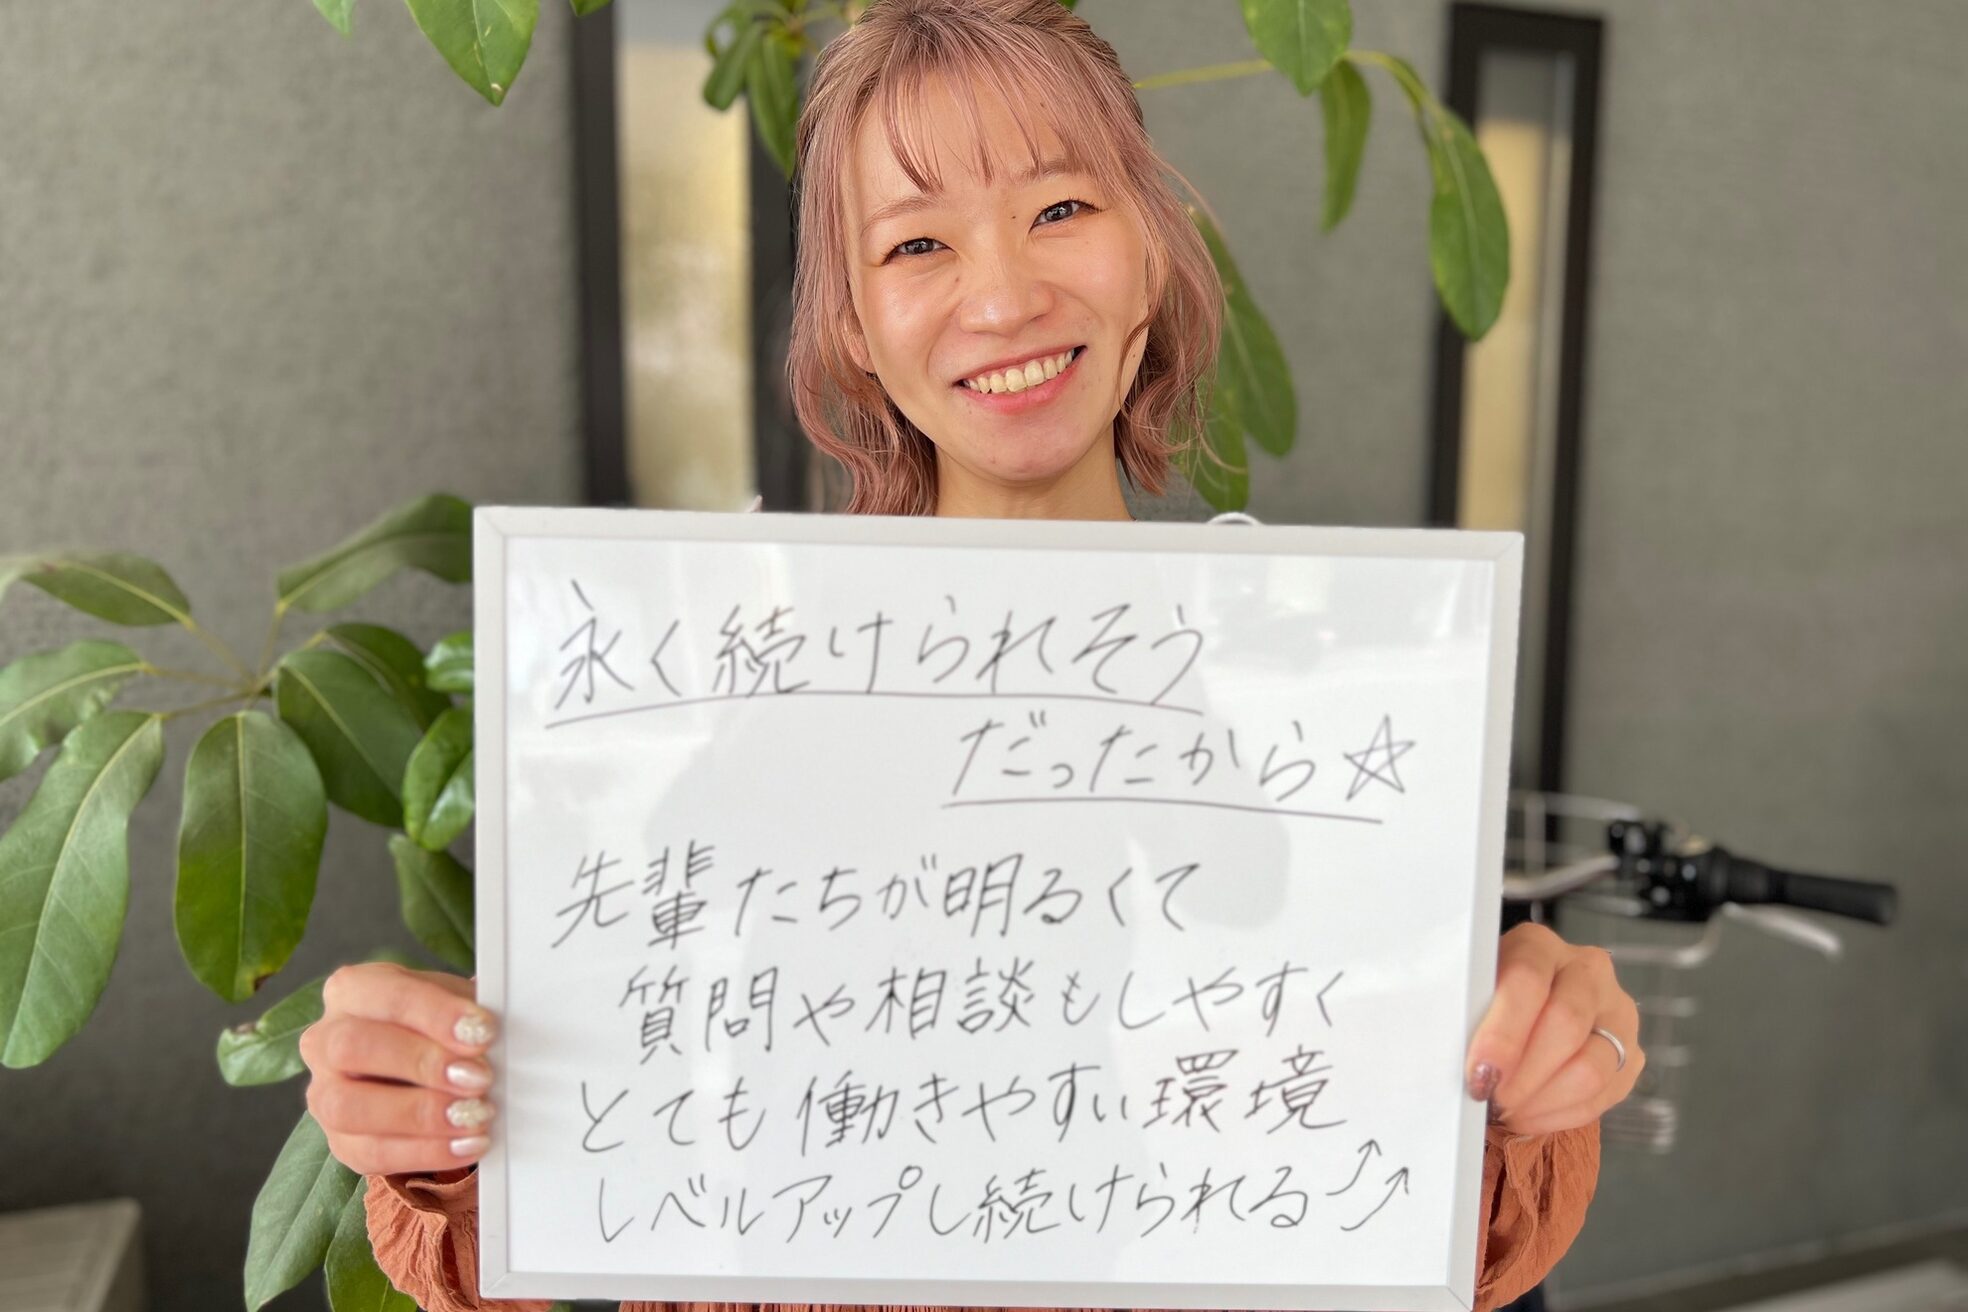 永く続けられそう
だったから☆
先輩たちが明るくて
質問や相談もしやすく
とても働きやすい環境
レベルアップし続けられる⤴⤴